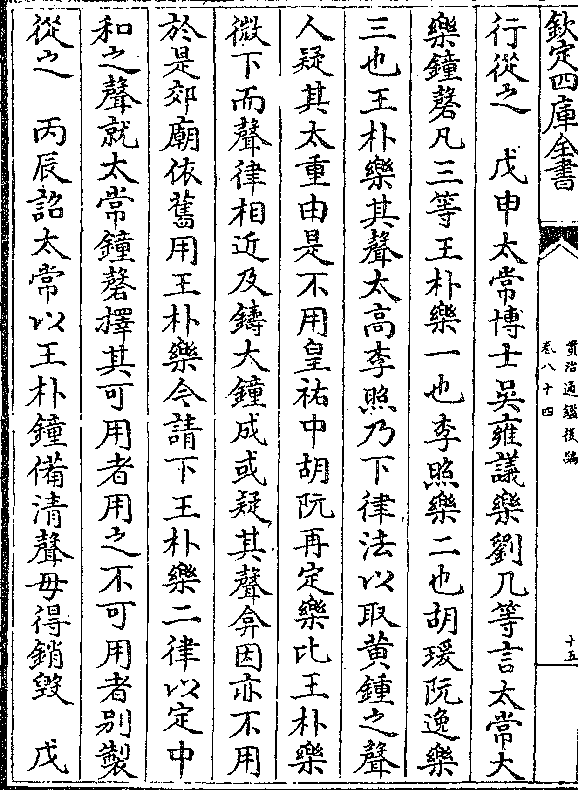 欽定四庫全書
資治通鑑後編
卷八十四
十五
行從之　戊申太常博士吳雍議樂劉几等言太常大
樂鐘磬凡三等王朴樂一也李照樂二也胡瑗阮逸樂
三也王朴樂其聲太高李照乃下律法以取黃鍾之聲
人疑其太重由是不用皇祐中胡阮再定樂比王朴樂
微下而聲律相近及鑄大鐘成或疑其聲弇因亦不用
於是郊廟依舊用王朴樂今請下王朴樂二律以定中
和之聲就太常鐘磬擇其可用者用之不可用者別製
從之　丙辰詔太常以王朴鐘備清聲毋得銷毀　戊